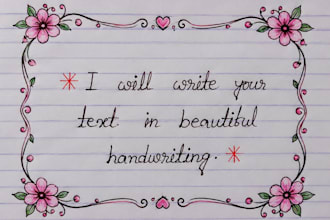 * I will write your
text in beautiful
handwriting. *